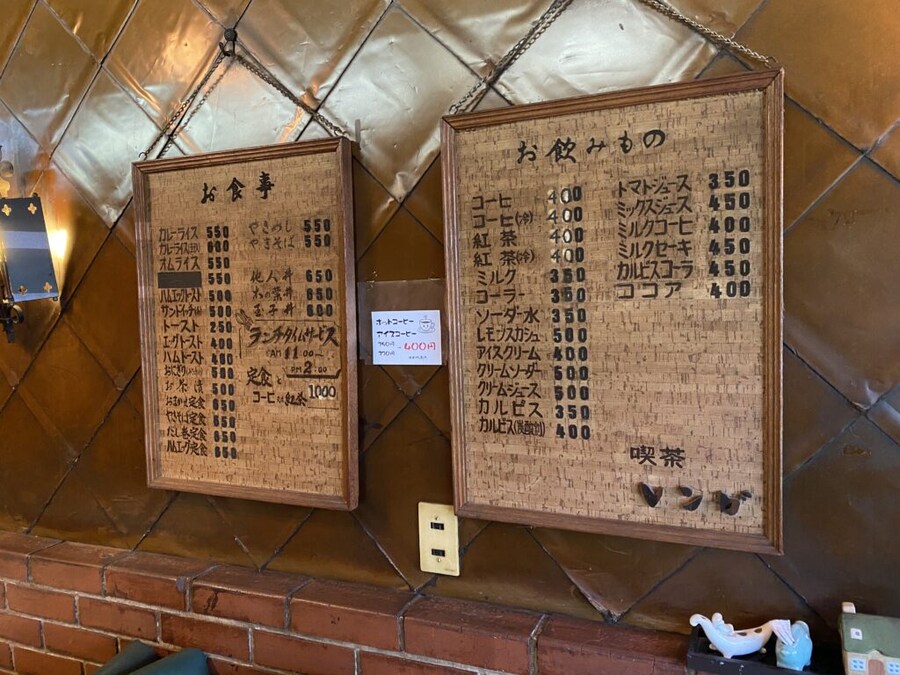 お食事
カレーライス 550
カレーライス(玉入) 600
オムライス 550
550
ハムエッグトースト 500
サンドイッチ 500
トースト 250
エッグトースト 400
ハムトースト 400
おにぎり 500
お茶漬 500
おまかせ定食 650
やきそば定食 650
だし巻定食 650
ハムエッグ定食 650
やきめし 550
やきそば 550
他人丼 650
木の葉丼 600
玉子丼 600
ランチタイムサービス
AM 11:00〜
PM 2:00
定食と
コーヒ又は紅茶 1000
ホットコーヒー
アイスコーヒー
400円
お飲みもの
コーヒ 400
コーヒ(冷) 400
紅茶 400
紅茶(冷) 400
ミルク 350
コーラー 350
ソーダー水 350
レモンスカッシュ 500
アイスクリーム 400
クリームソーダー 500
クリームジュース 500
カルピス 350
カルピス(炭酸割) 400
トマトジュース 350
ミックスジュース 450
ミルクコーヒ 400
ミルクセーキ 450
カルピスコーラ 450
ココア 400
喫茶
マンガ